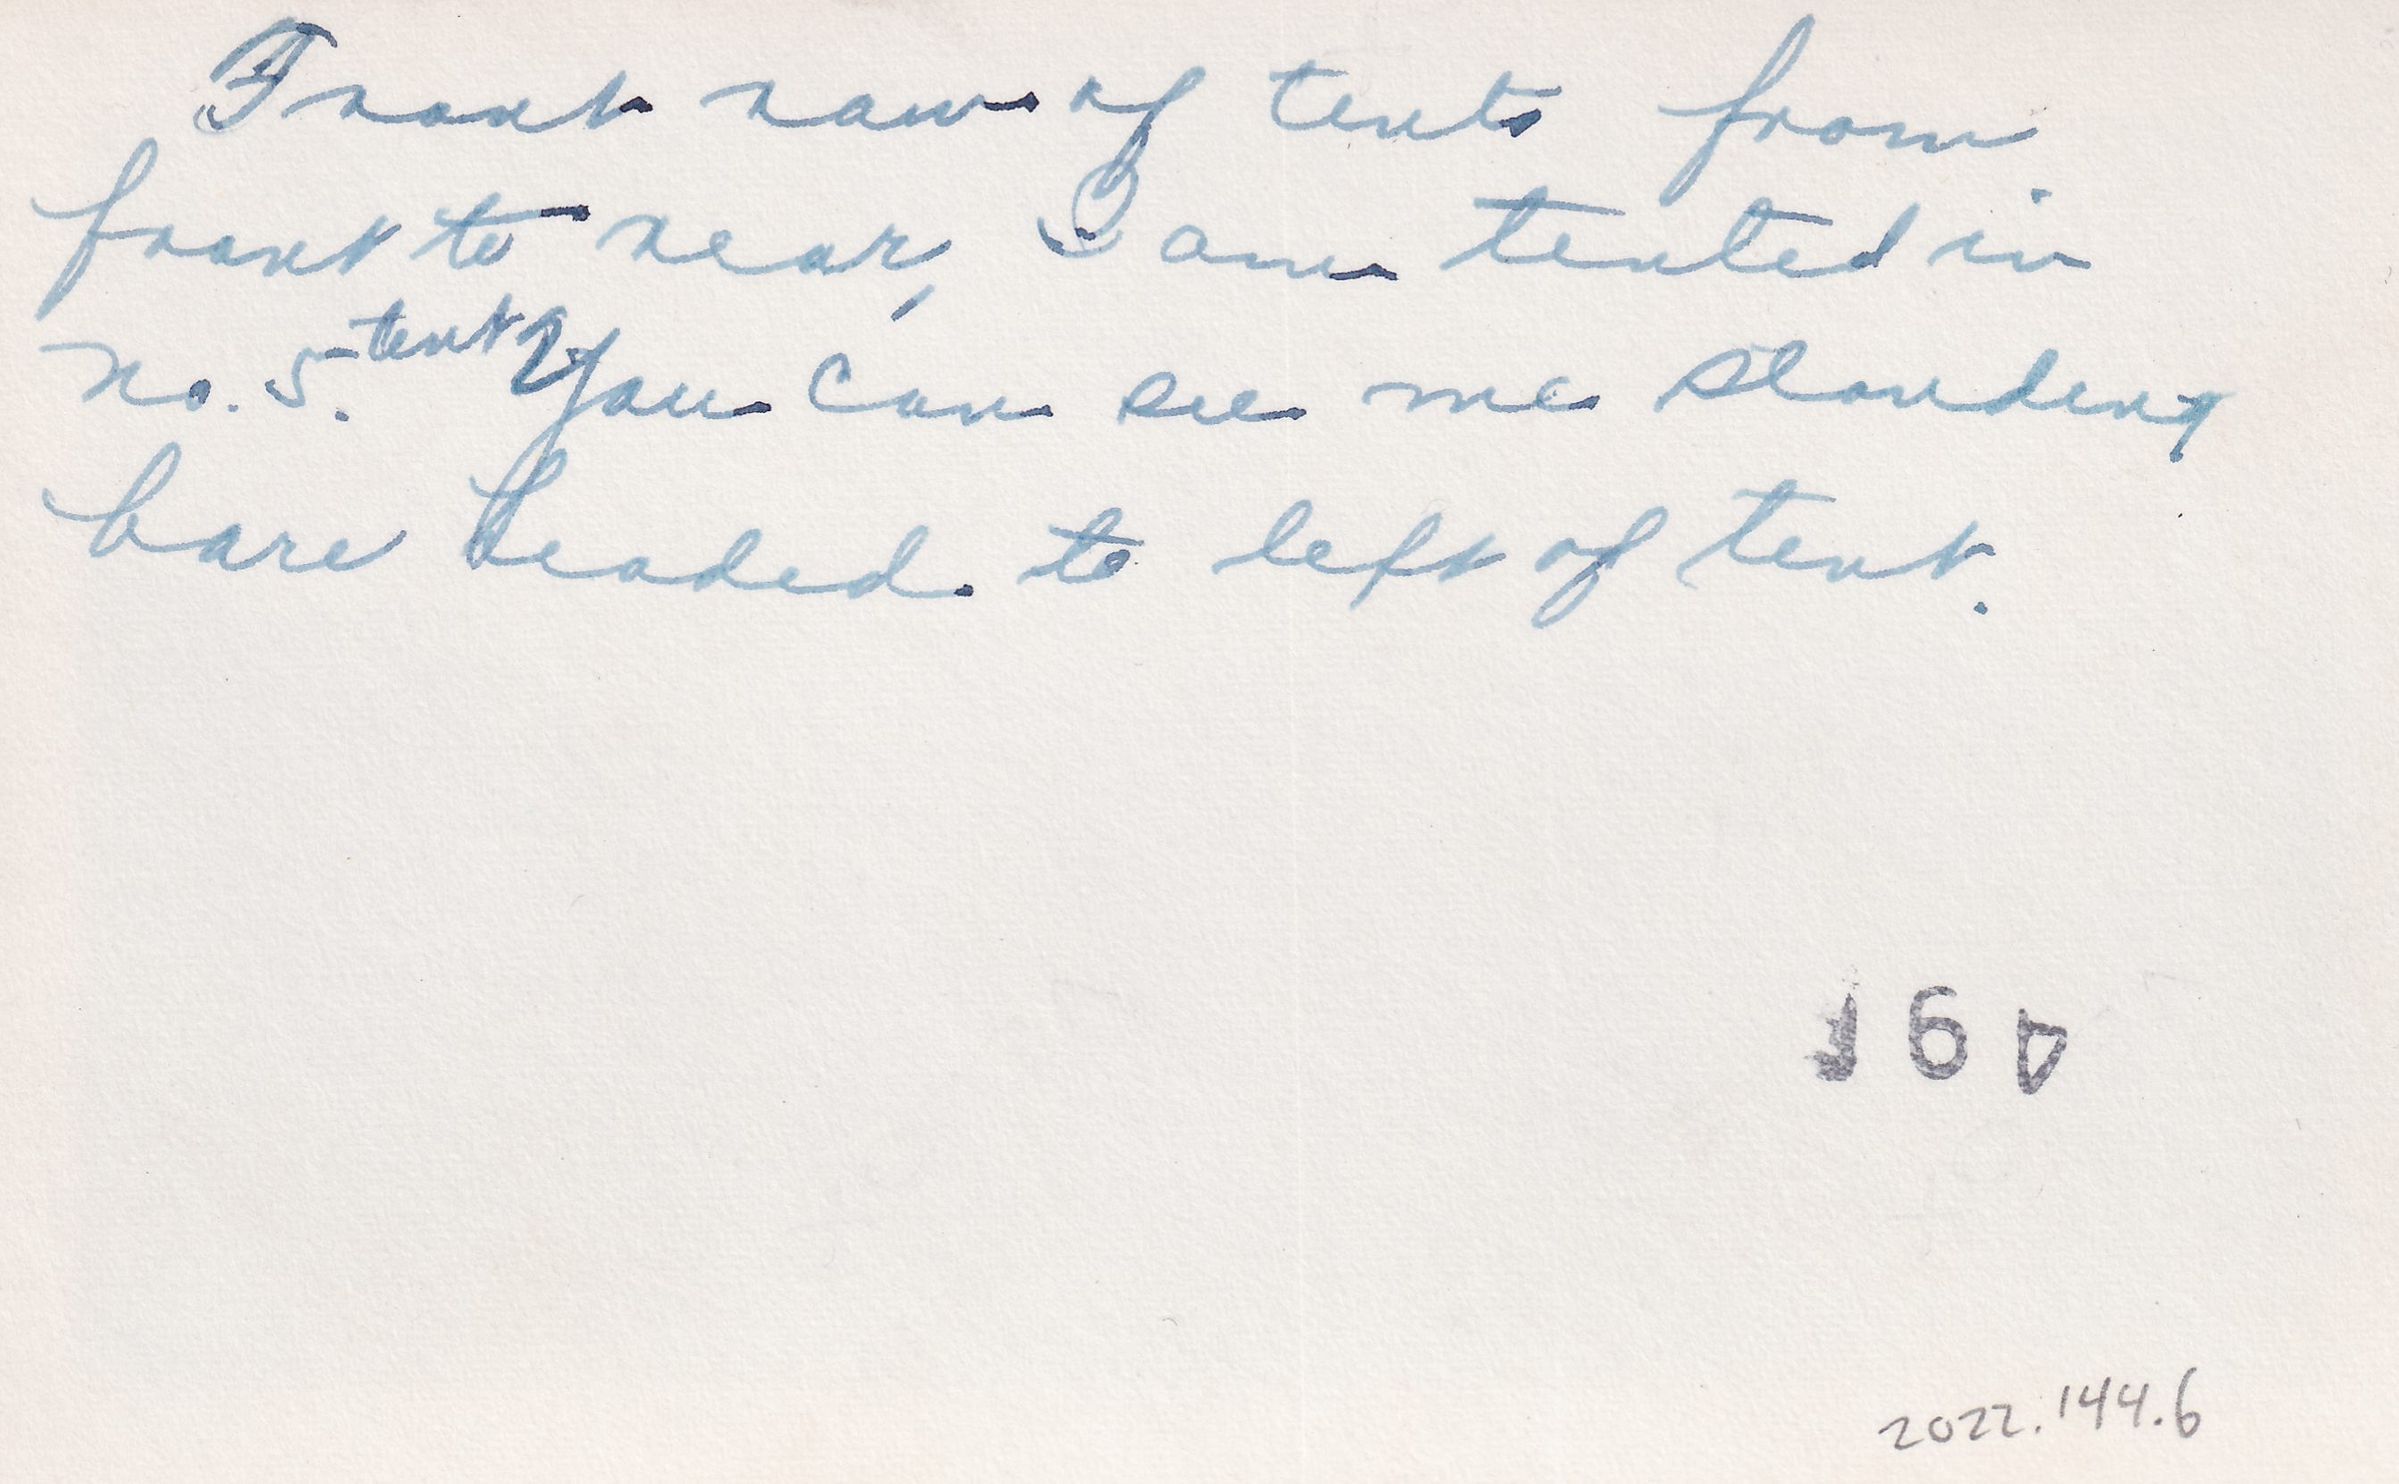 Front row of tents from
front to rear, I am tented in
no. 5. tent You can see me standing
bare headed to left of tent.
2022.144.6